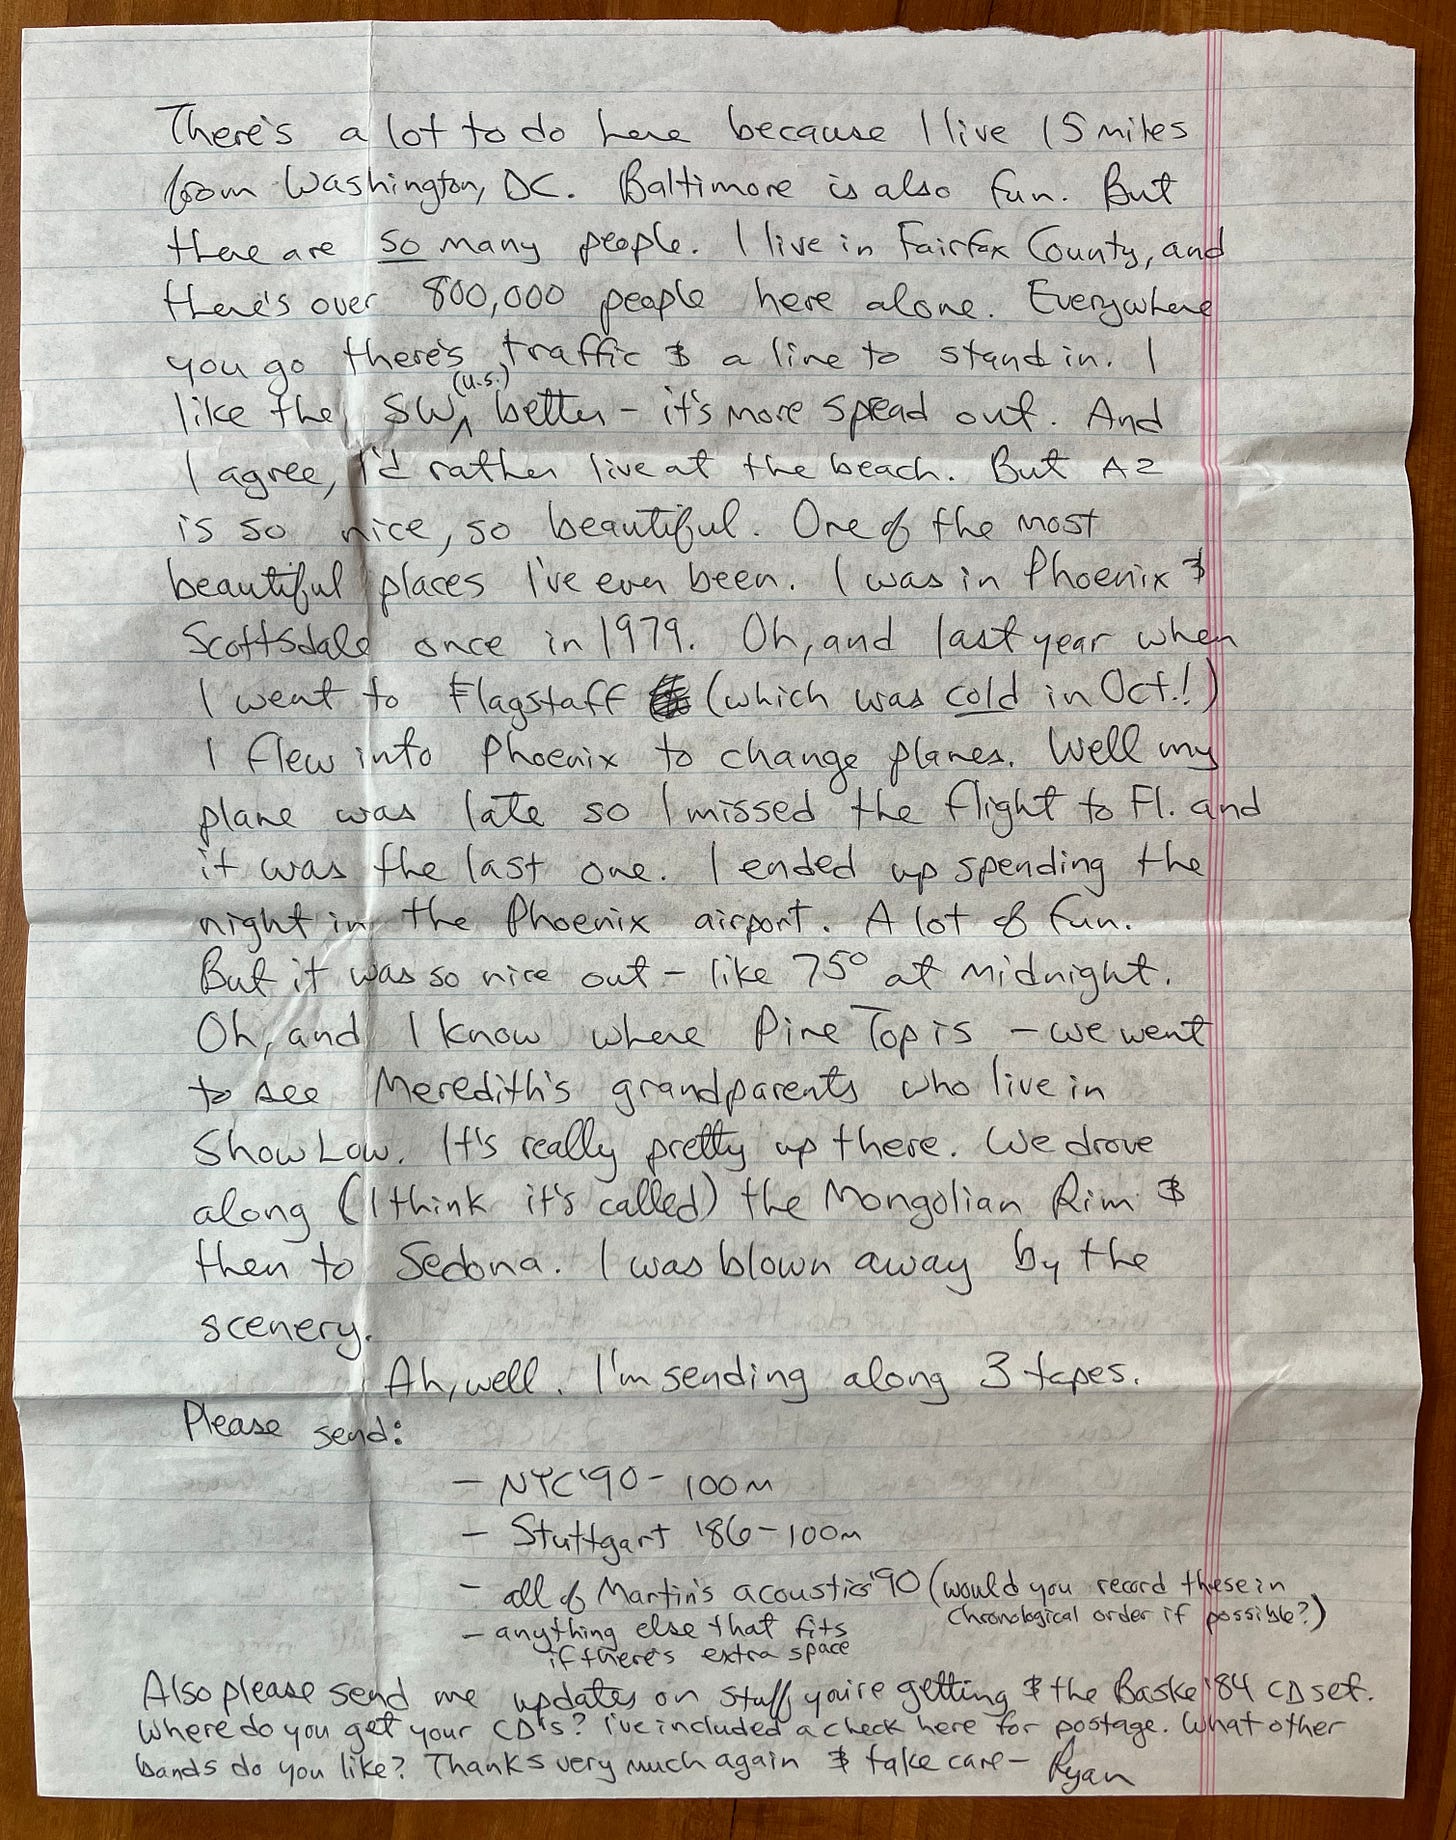 There's a lot to do here because I live 15 miles
from Washington, DC. Baltimore is also fun. But
there are so many people. I live in Fairfax County, and
there's over 800,000 people here alone. Everywhere
you go there's traffic & a line to stand in. I
like the SW (U.S.) better – it's more spread out. And
I agree, I'd rather live at the beach. But AZ
is so nice, so beautiful. One of the most
beautiful places I've ever been. I was in Phoenix &
Scottsdale once in 1979. Oh, and last year when
I went to Flagstaff (which was cold in Oct.!)
I flew into Phoenix to change planes. Well my
plane was late so I missed the flight to Fl. and
it was the last one. I ended up spending the
night in the Phoenix airport. A lot of fun.
But it was so nice out – like 75° at midnight.
Oh, and I know where Pine Top is – we went
to see Meredith's grandparents who live in
Show Low. It's really pretty up there. We drove
along (I think it's called) the Mongolian Rim &
then to Sedona. I was blown away by the
scenery.
Ah, well. I'm sending along 3 tapes.
Please send:
– NYC '90 – 100m
– Stuttgart '86 – 100m
– all of Martin's acoustics '90 (would you record these in
chronological order if possible?)
– anything else that fits
if there's extra space
Also please send me updates on stuff you're getting & the '84 CD set.
Where do you get your CD's? I've included a check here for postage. What other
bands do you like? Thanks very much again & take care – Ryan